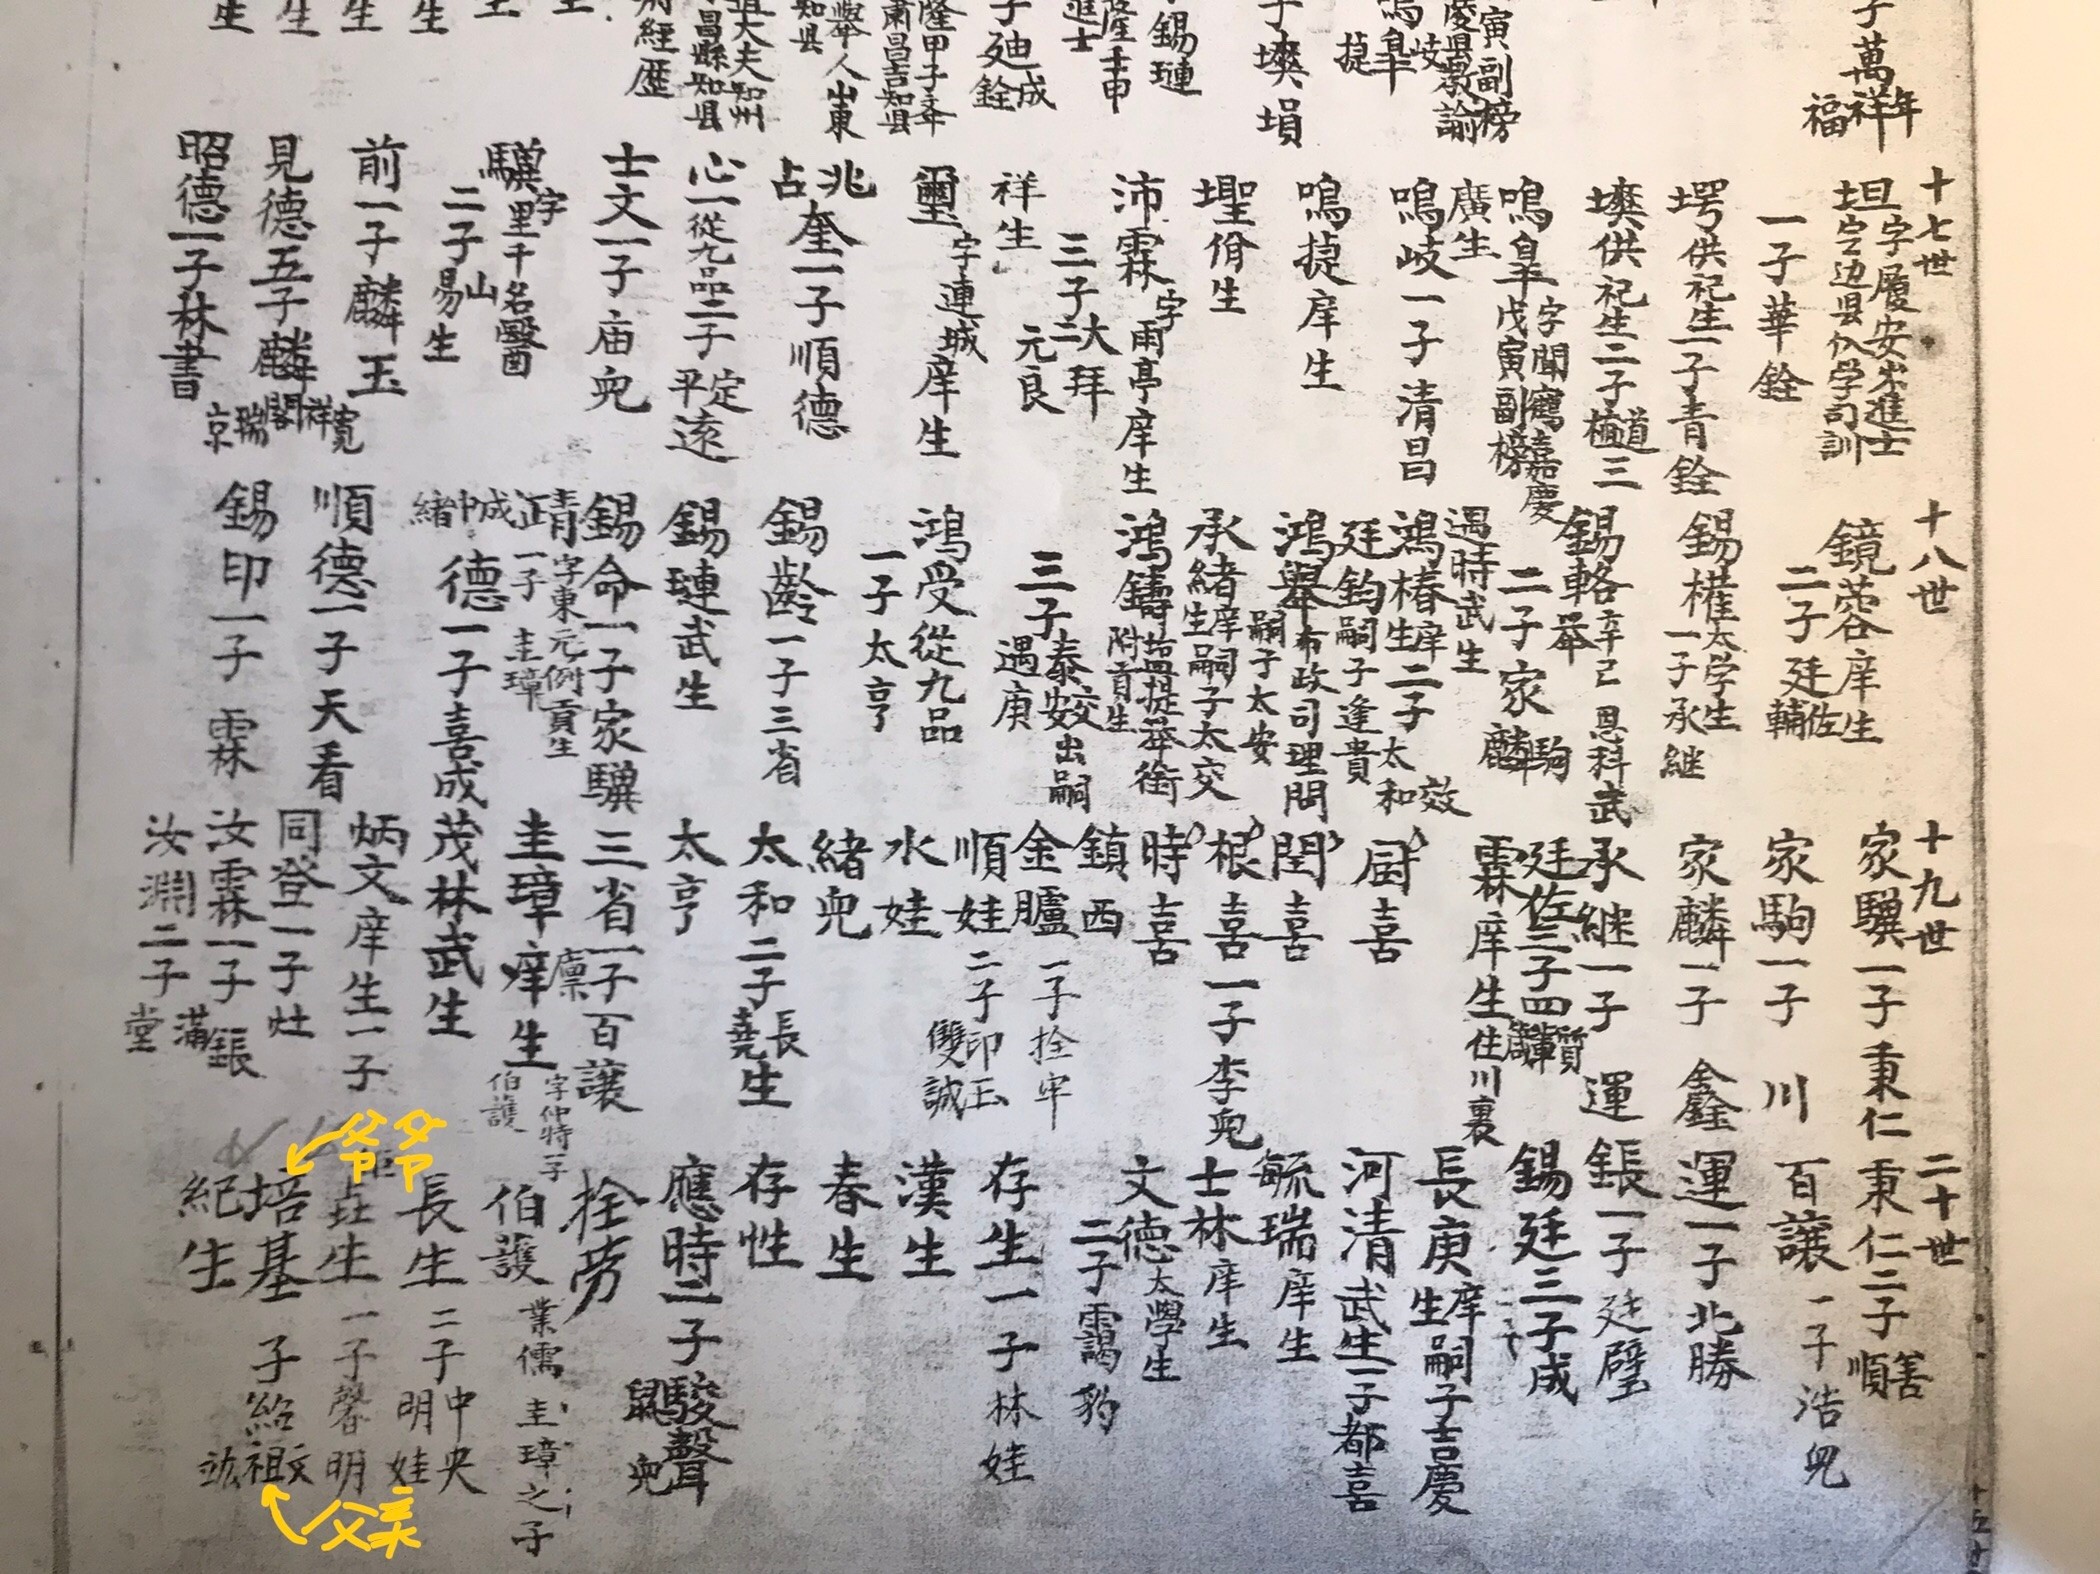 子萬年
祥
福
寅副榜
慶昌教諭
鳴岐
皐
捷
子墺塤
錫璉
隆壬申
進士
子廸成
銓
隆甲子年
肅昌吉知县
舉人山東
知县
大夫知州
昌縣知县
經歷
生
生
生
生
十七世
坦字履安岁進士
定边县儒学司訓
一子華銓
堮供祀生一子青銓
墺供祀生二子道三
植
鳴皐字聞鶴嘉慶
戊寅副榜
廣生
鳴岐一子清昌
鳴捷庠生
堲佾生
沛霖字雨亭庠生
三子大拜
二
元良
祥生
璽字連城庠生
兆奎一子順德
占
心一從九品二子定遠
平
士文一子庙兜
驥字里千名醫
二子山
易生
前一子麟玉
見德五子麟寛
祥
閣
瑞
京
昭德一子林書
十八世
鏡蓉庠生
二子廷佐
輔
錫權太学生
一子承継
錫輅辛己恩科武
舉
二子家駒
麟
遇時武生
鴻椿庠生二子太和
效
廷鈞嗣子逢貴
鴻舉布政司理問
嗣子太安
承緒庠生嗣子太交
鴻鑄塩提舉銜
附貢生
三子泰交
安出嗣
遇庚
鴻受從九品
一子太亨
錫齡一子三省
錫璉武生
錫命一子家驥
靖字東元例貢生
一子圭璋
成
中
緒
德一子喜成
順德一子天看
錫印一子霖
十九世
家驥一子秉仁
家駒一子川
家麟一子鑫
承継一子運
廷佐三子四質
霖庠生住川裏
厨喜
閏喜
根喜一子李兜
時喜
鎮西
金臚一子拴牢
順娃二子印玉
雙誠
水娃
緒兜
太和二子長生
蕘
太亨
三省一子百讓
圭璋廪庠生字仲特子
伯護
茂林武生
炳文庠生一子
同登一子灶
汝霖一子鋹
汝淵二子滿
堂
二十世
秉仁二子善
順
百讓一子浩兜
運一子北勝
鋹一子廷璧
錫廷三子成
長庚庠生嗣子吉慶
河清武生一子都喜
毓瑞庠生
士林庠生
文德太學生
二子靄豹
存生一子林娃
漢生
春生
存性
應時二子駿聲
鼠兜
拴劳
伯護業儒圭璋之子
長生二子中央
明娃
垚生一子馨明
培基子紹文
祖
竑
紀生
爷爷
父亲